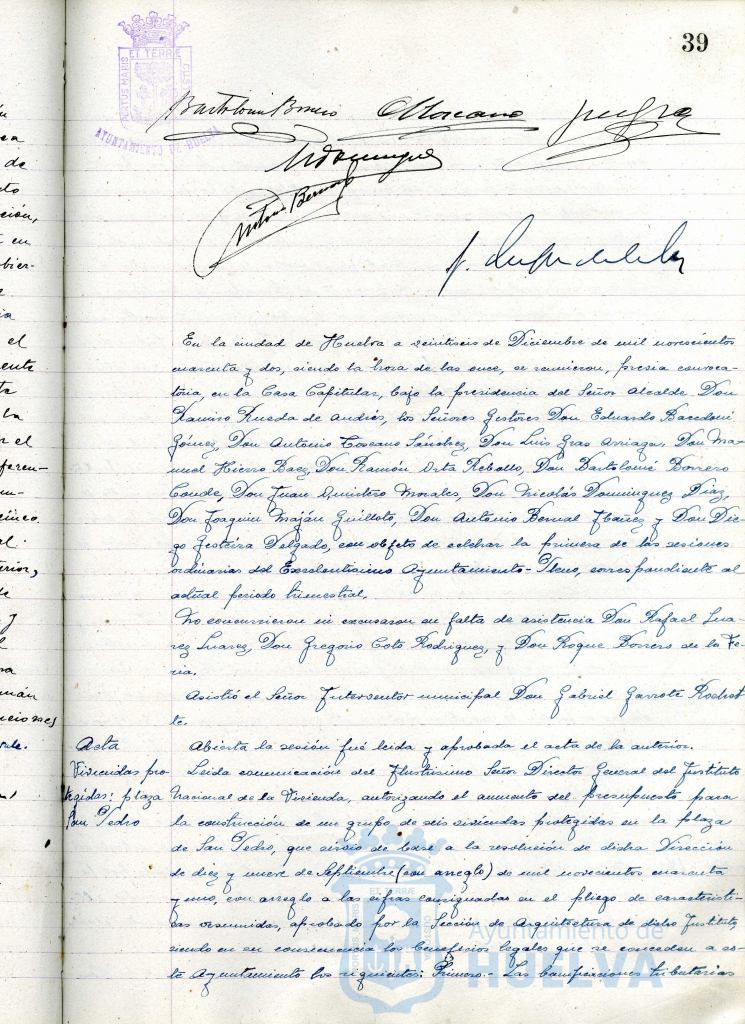 39
PORTUS MARIS ET TERRE CUSTODIA
AYUNTAMIENTO DE HUELVA
Bartolomé Borrero
A Toscano
N Dominguez
Antonio Bernal
En la ciudad de Huelva a veintiseis de Diciembre de mil novecientos
cuarenta y dos, siendo la hora de las once, se reunieron, previa convoca-
toria, en la Casa Capitular, bajo la presidencia del Señor Alcalde Don
Ramiro Rueda de Andrés, los Señores Gestores Don Eduardo Bacedoni
Gómez, Don Antonio Toscano Sánchez, Don Luis Gras Arriaga, Don Ma-
nuel Hierro Baez, Don Ramón Orta Rebollo, Don Bartolomé Borrero
Conde, Don Juan Quintero Morales, Don Nicolás Dominguez Diaz,
Don Joaquin Maján Guilloto, Don Antonio Bernal Ibañez y Don Die-
go Gesteira Delgado, con objeto de celebrar la primera de las sesiones
ordinarias del Excelentisimo Ayuntamiento-Pleno, correspondiente al
actual periodo trimestral.
No concurrieron ni excusaron su falta de asistencia Don Rafael Sua-
rez Suarez, Don Gregorio Coto Rodriguez, y Don Roque Borrero de la Fe-
ria.
Asistió el Señor Interventor municipal Don Gabriel Garrote
te.
Acta
Abierta la sesión fué leida y aprobada el acta de la anterior.
Viviendas pro-
tegidas: plaza
San Pedro
Leida comunicación del Ilustrisimo Señor Director General del Instituto
Nacional de la Vivienda, autorizando el aumento del presupuesto para
la construcción de un grupo de seis viviendas protegidas en la plaza
de San Pedro, que sirvio de base a la resolución de dicha Dirección
de diez y nueve de Septiembre (con arreglo) de mil novecientos cuarenta
y uno, con arreglo a las cifras consignadas en el pliego de caracteristi-
cas resumidas, aprobado por la Sección de Arquitectura de dicho Instituto,
siendo en su consecuencia los beneficios legales que se conceden a es-
te Ayuntamiento los siguientes: Primero.- Las bonificaciones tributarias
Ayuntamiento de
HUELVA